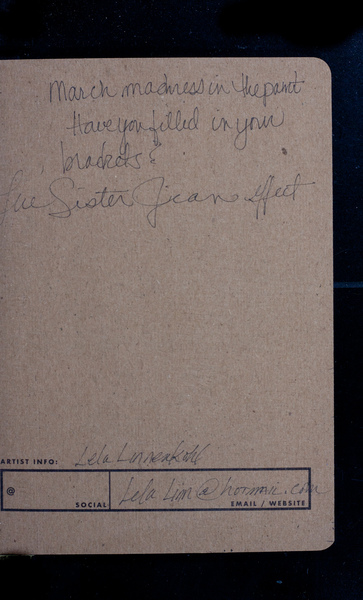 March madness in the paint
Have you filled in your
brackets?
The Sister Jean effect
ARTIST INFO: Lela
@
SOCIAL
@hotmail.com
EMAIL / WEBSITE